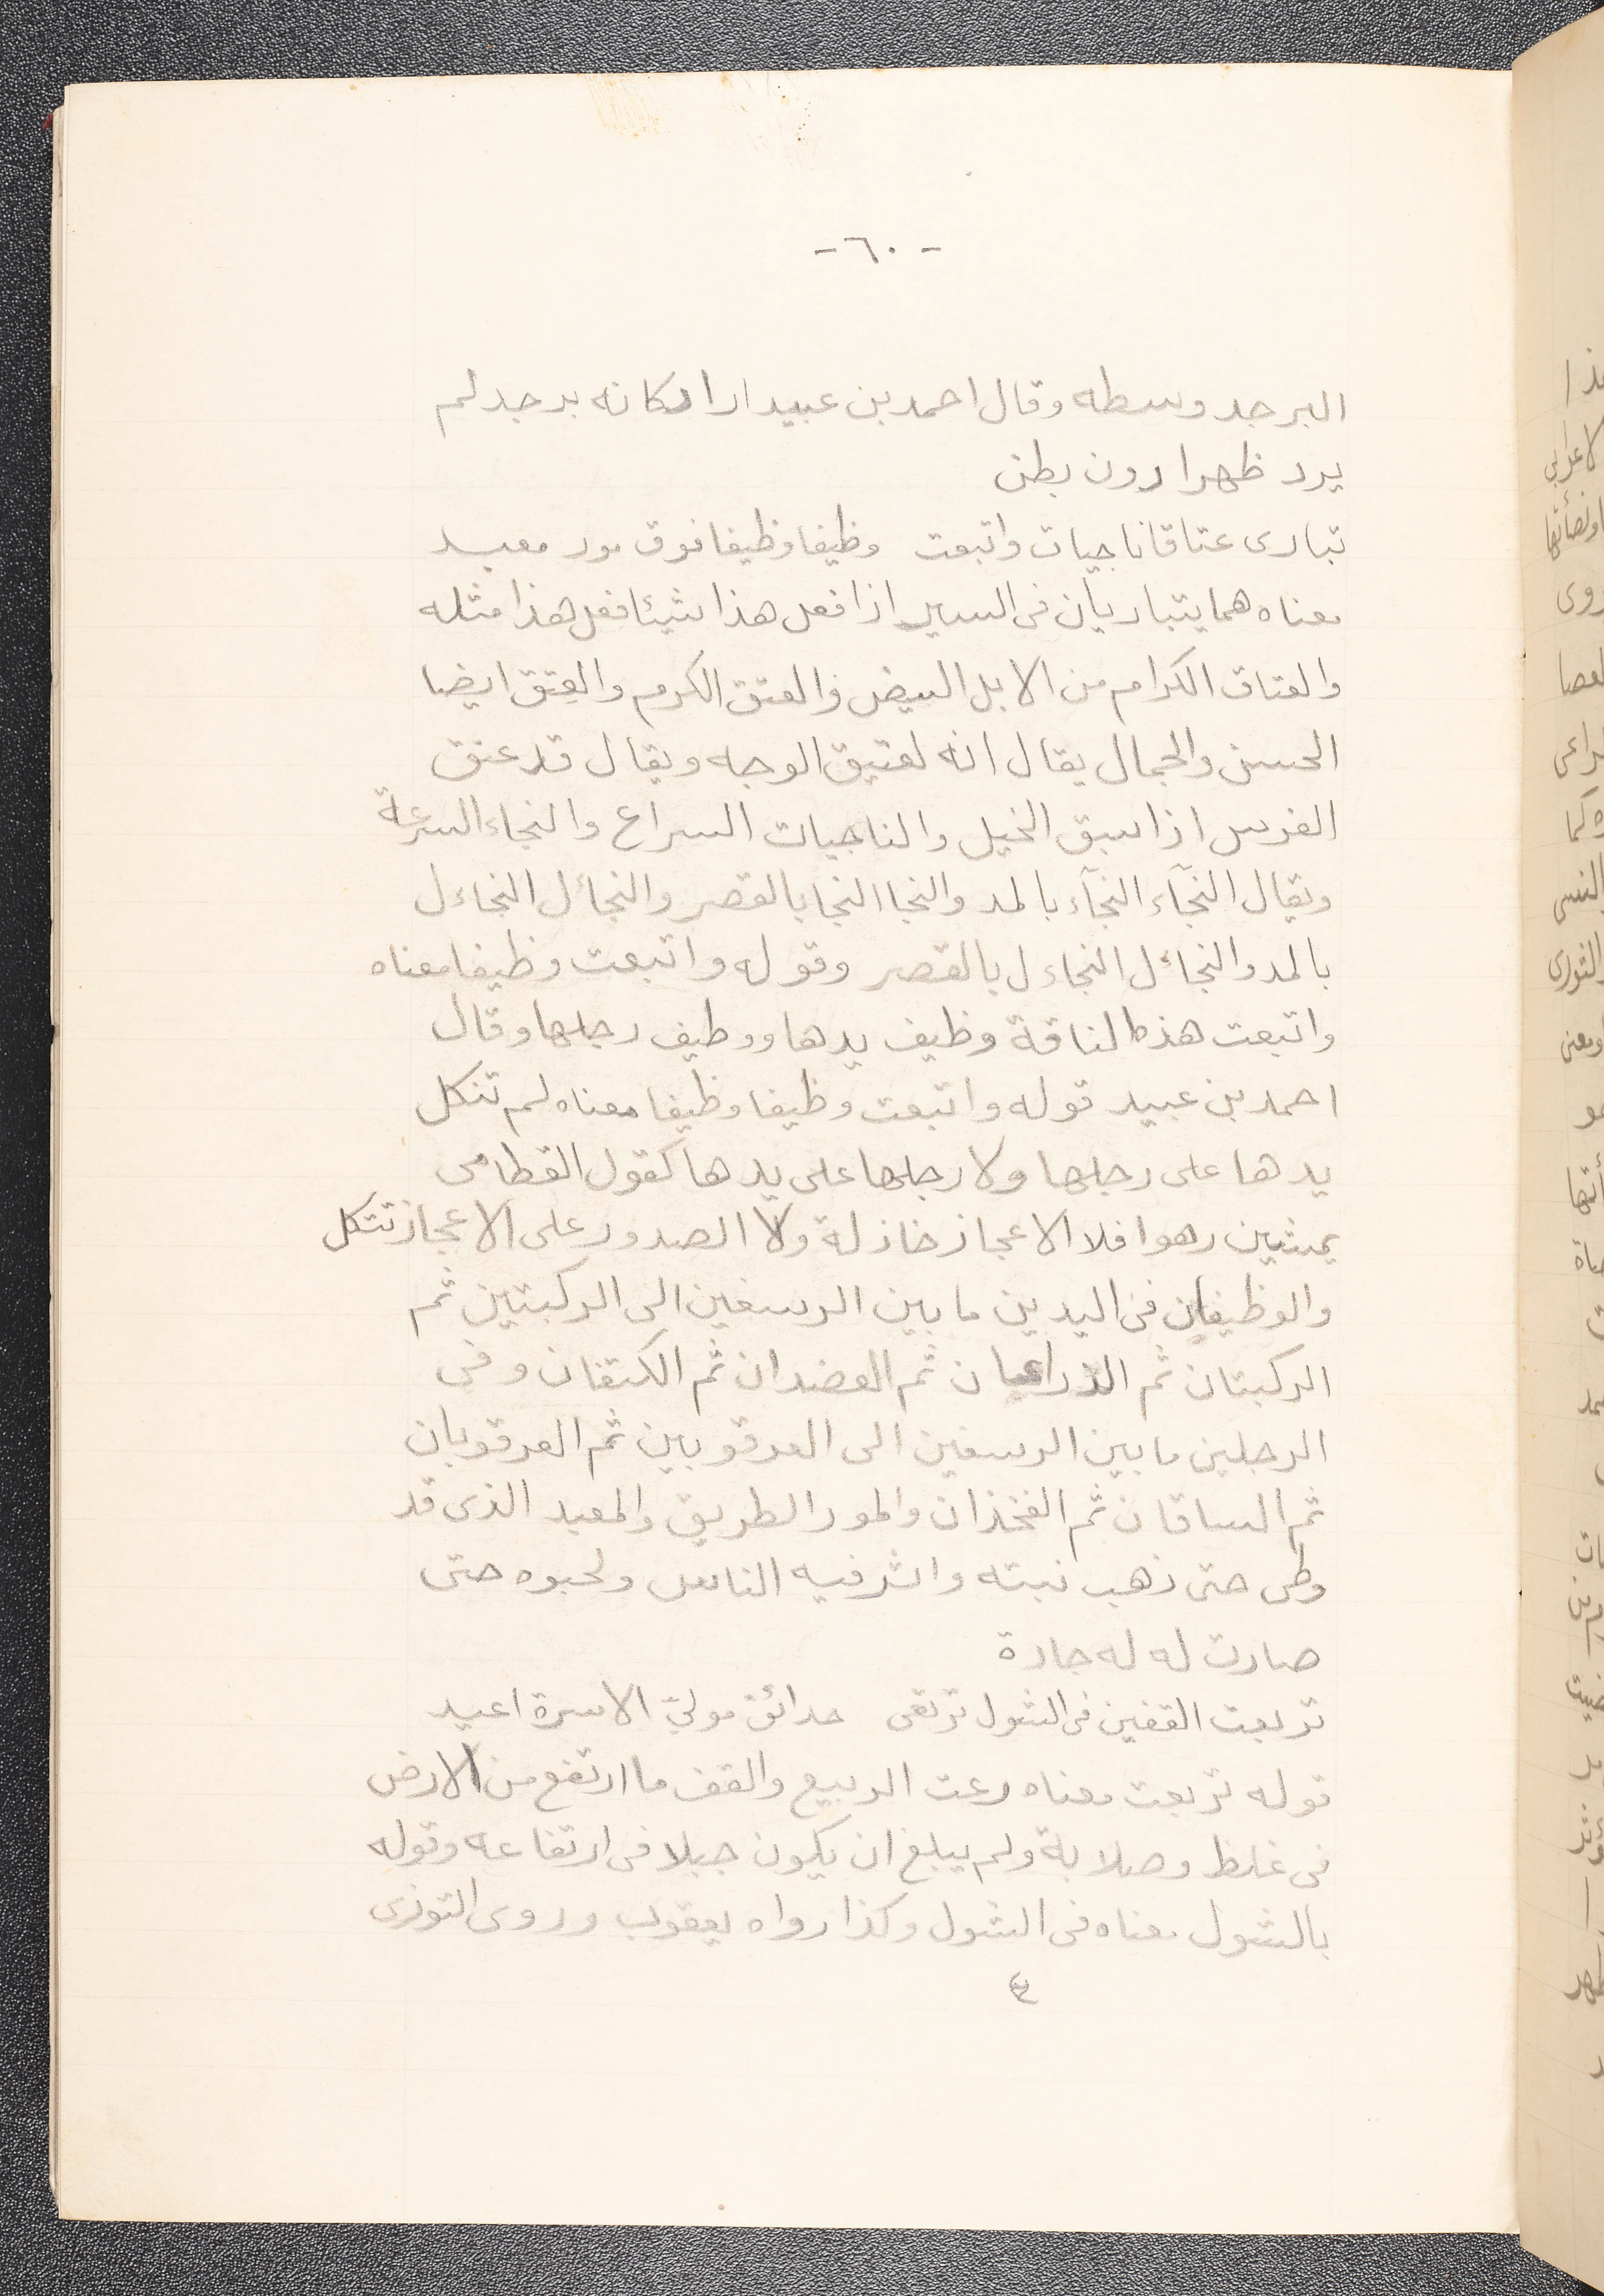 - ٦٠ -
البرجد وسطه وقال احمد بن عبيد اراد كانه برجد لم
يرد ظهرا دون بطن
تبارى عتاقا ناجيات واتبعت وظيفا وظيفا فوق مور معبد
معناه هما يتباريان فى السير اذا فعل هذا شيئا فعل هذا مثله
والعتاق الكرام من الابل البيض والعتق الكرم والعتق ايضا
الحسن والجمال يقال انه لعتيق الوجه ويقال قد عتق
الفرس اذا سبق الخيل والناجيات السراع والنجاء السرعة
ويقال النجآء النجآء بالمد والنجا النجا بالقصر والنجاءل النجاءل
بالمد والنجاءل النجاءل بالقصر وقوله واتبعت وظيفا معناه
واتبعت هذه الناقة وظيف يدها ووظيف رجلها وقال
احمد بن عبيد قوله واتبعت وظيفا وظيفا معناه لم تتكل
يدها على رجلها ولا رجلها على يدها كقول القطامى
يمشين رهوا فلا الاعجاز خاذلة ولا الصدور على الاعجاز تتكل
والوظيفان فى اليدين ما بين الرسغين الى الركبتين ثم
الركبتان ثم الذراعان ثم العضدان ثم الكتفان وفى
الرجلين ما بين الرسغين الى العرقوبين ثم العرقوبان
ثم الساقان ثم الفخذان والمور الطريق والمعبد الذى قد
وطى حتى ذهب نبته واثر فيه الناس ولحبوه حتى
صارت له له جادة
تربعت القفين فى الشول ترتعى حدائق مولي الاسرة اغيد
قوله تربعت معناه رعت الربيع والقف ما ارتفع من الارض
فى غلظ وصلابة ولم يبلغ ان يكون جبلا فى ارتفاعه وقوله
بالشول معناه فى الشول وكذا رواه يعقوب وروى التوزى